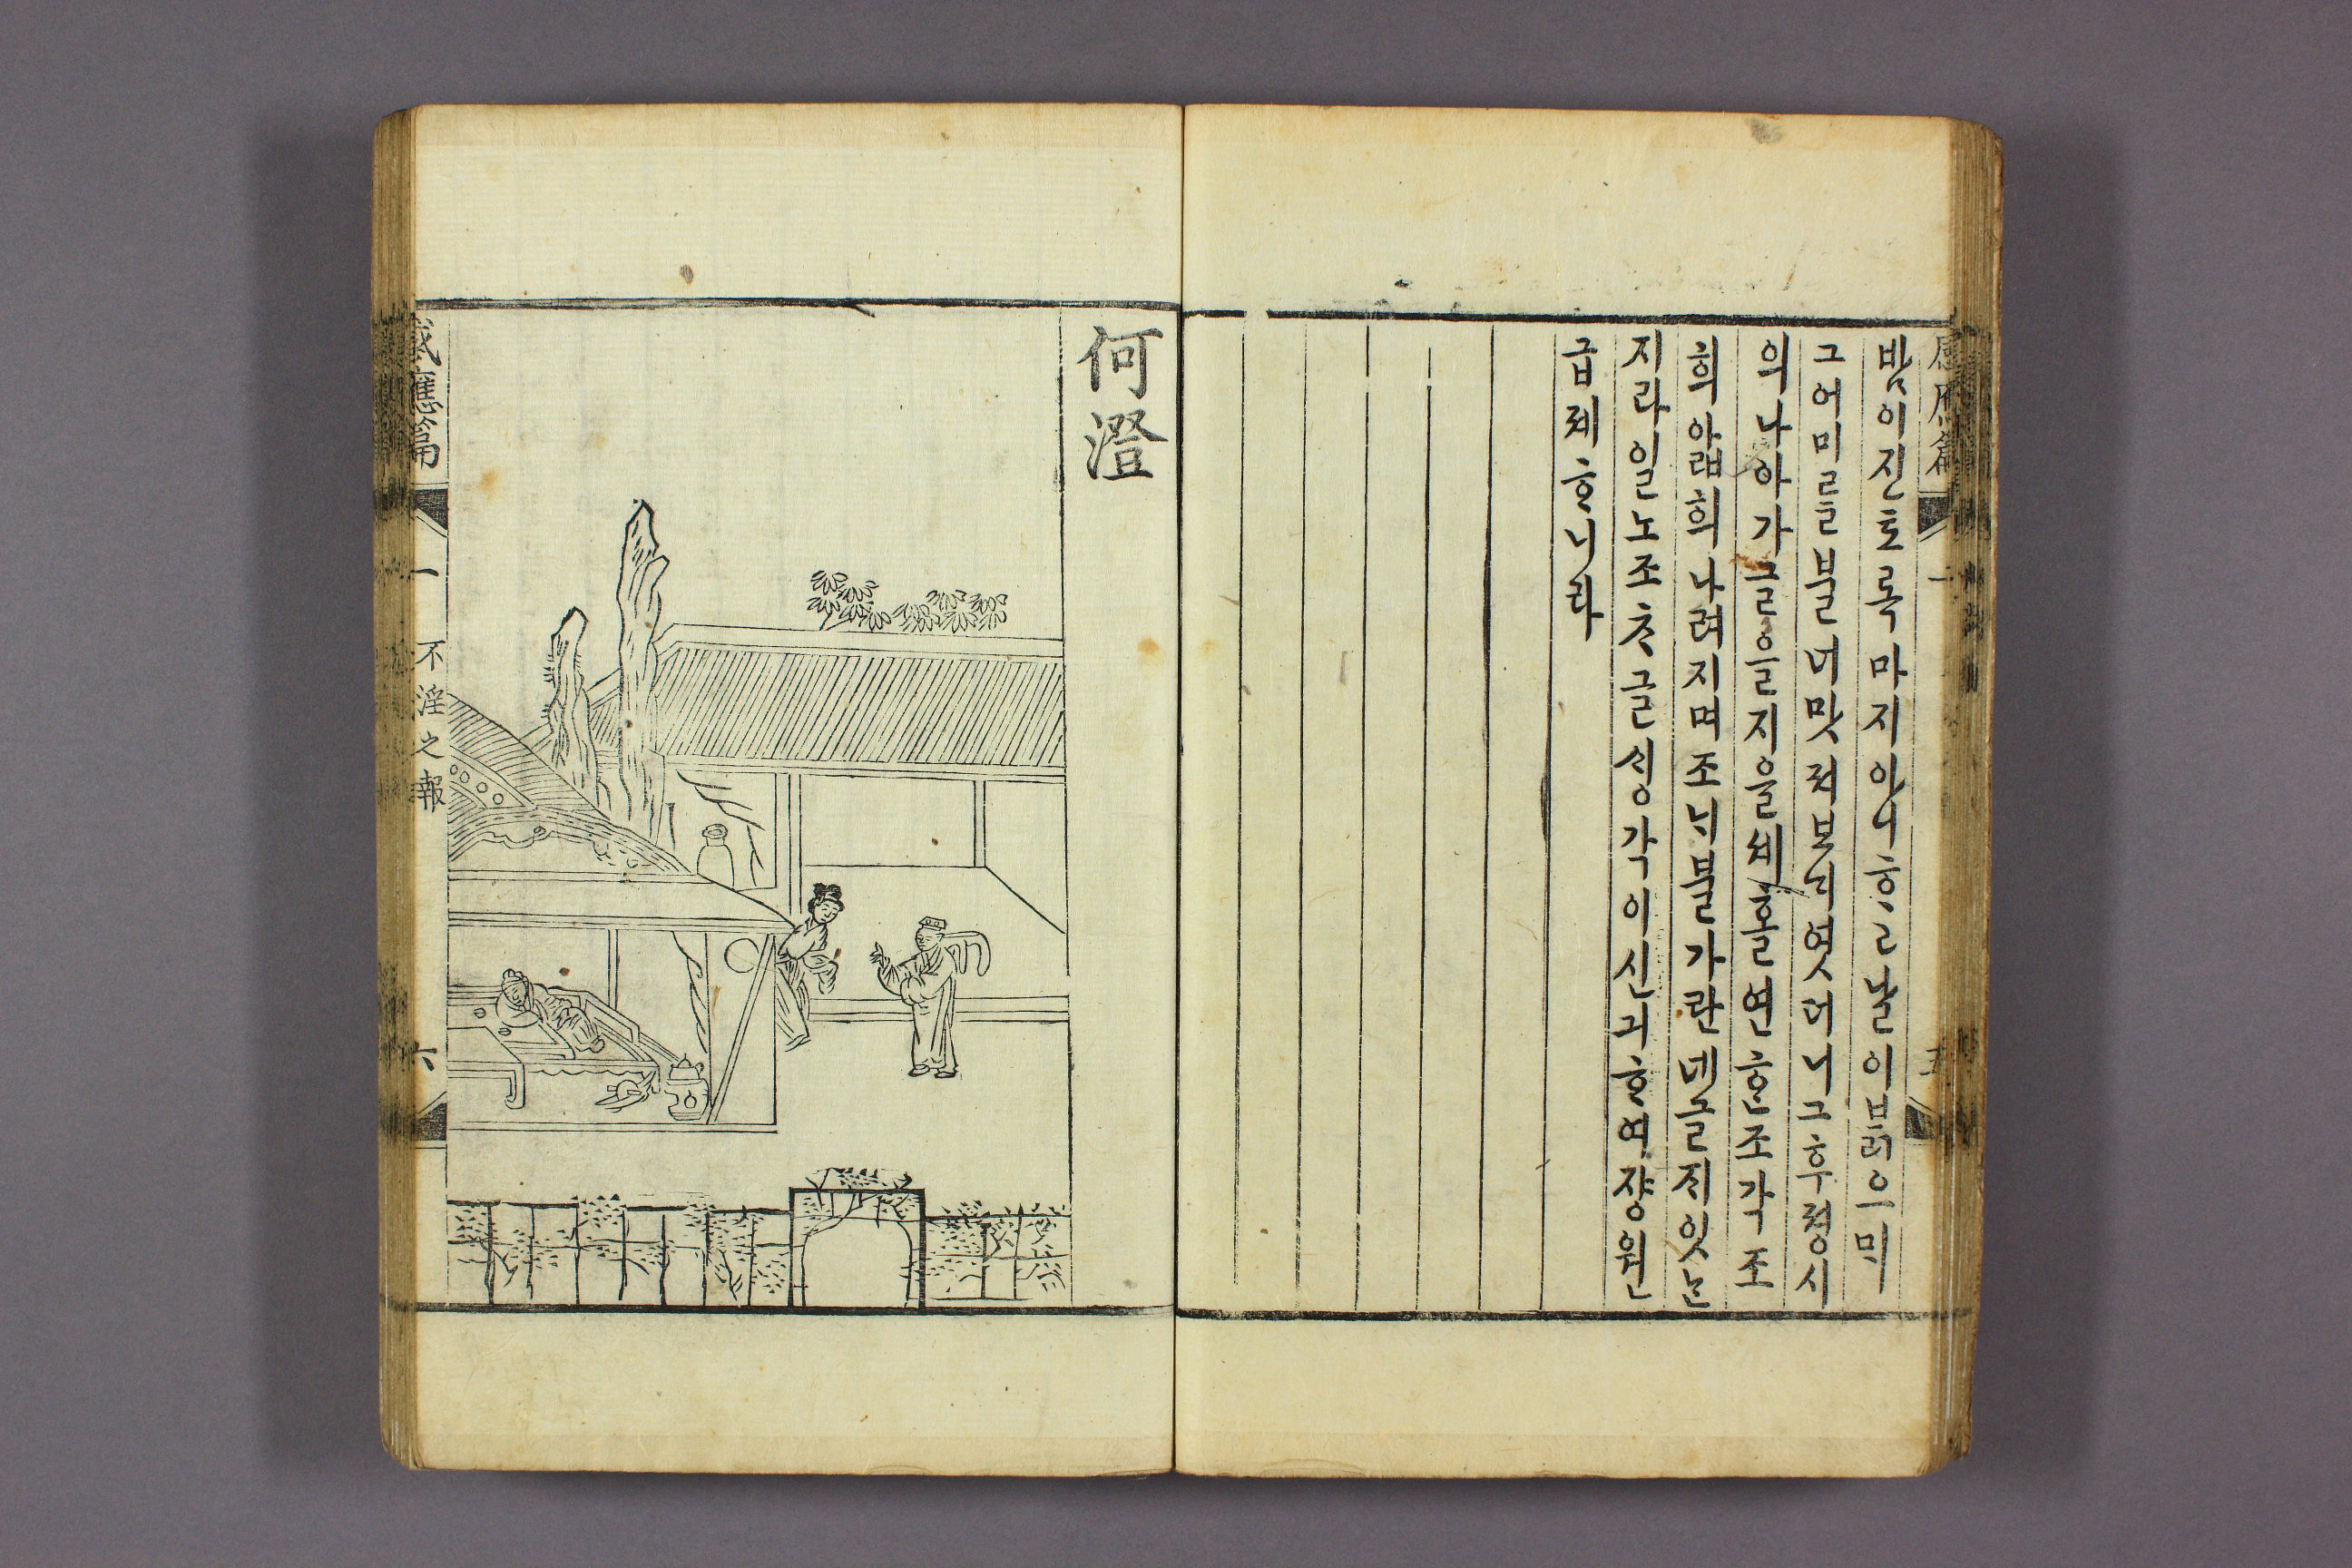 感應篇 一 五
밤이진토록마지아니ᄒᆞ고날이ᄇᆞᆰ으ᄆᆡ
그어미ᄅᆞᆯ블너맛져보ᄂᆡ엿더니그후졍시
의나아가글을지을ᄉᆡ홀연ᄒᆞᆫ조각조
희앏희나려지며조ᄂᆡ블가란네글ᄌᆡ잇ᄂᆞᆫ
지라일노조ᄎᆞ글ᄉᆡᆼ각이신긔ᄒᆞ여쟝원
급졔ᄒᆞ니라
何澄
感應篇 一 不淫之報 六